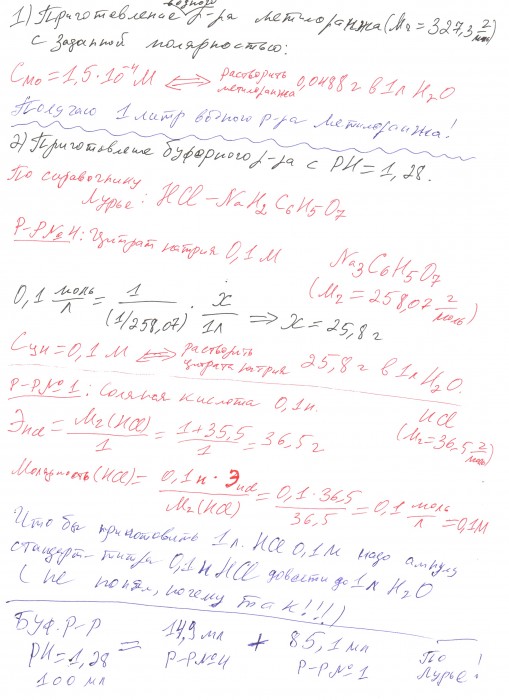 водного
1) Приготовление р-ра метилоранжа (Mr = 327,3 г/моль)
с заданной молярностью:
Cмо = 1,5·10⁻⁴ М ⟺ растворить метилоранжа 0,0488 г в 1 л H₂O
Получаю 1 литр водного р-ра метилоранжа!
2) Приготовление буферного р-ра с PH = 1,28.
По справочнику
Лурье: HCl – NaH₂C₆H₅O₇
Р-Р№4: Цитрат натрия 0,1 М
Na₃C₆H₅O₇
(Mr = 258,07 г/моль)
0,1 моль/л = 1/(1/258,07) · x/1л ⟹ x = 25,8 г
Cцн = 0,1 М ⟺ растворить цитрата натрия 25,8 г в 1 л H₂O.
Р-Р№1: Соляная кислота 0,1н.
HCl
(Mr = 36,5 г/моль)
Эhcl = Mr(HCl)/1 = 1+35,5/1 = 36,5 г
Молярность (HCl) = 0,1н · Эhcl/Mr(HCl) = 0,1·36,5/36,5 = 0,1 моль/л = 0,1М
Что бы приготовить 1 л. HCl 0,1 М надо ампулу
стандарт-титра 0,1 н HCl довести до 1 л H₂O
(не понял, почему так!!!)
БУФ. Р-Р
PH = 1,28
100 мл
= 14,9 мл
Р-Р№4
+ 85,1 мл
Р-Р№1
По
Лурье!